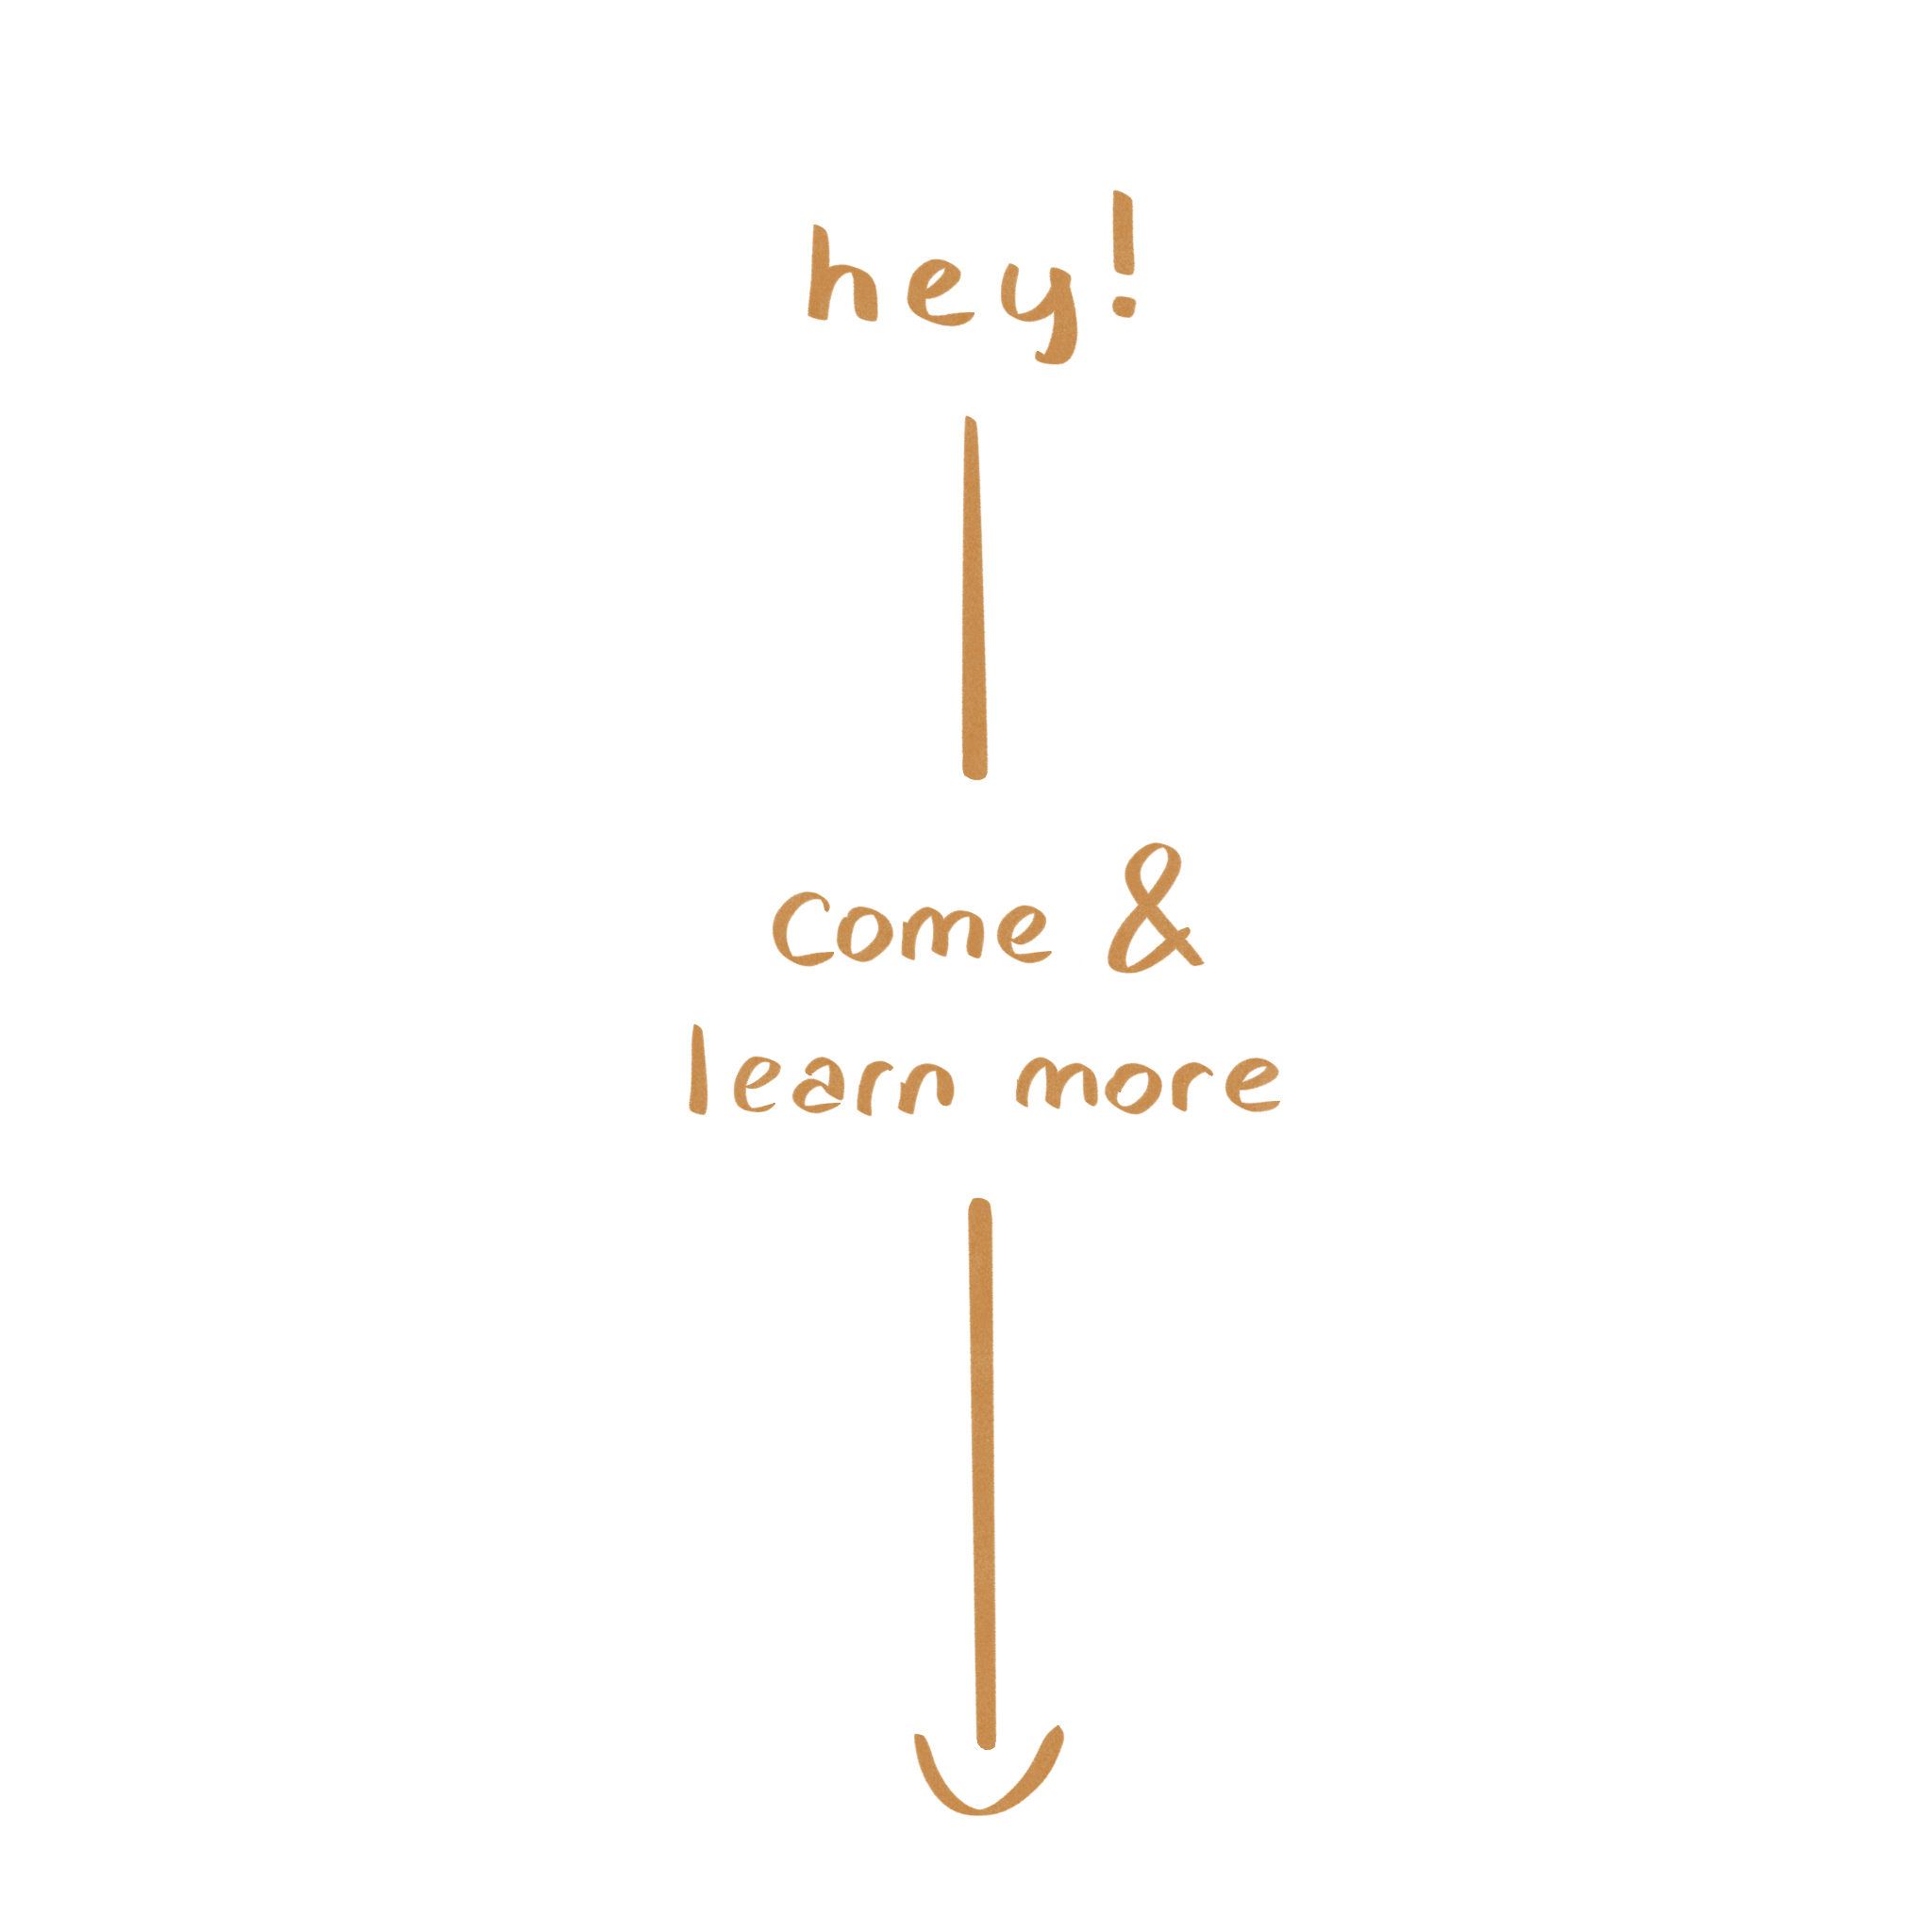 hey!
come &
learn more